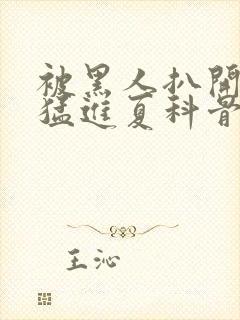 被黑人扒開
猛進夏科骨
王沁